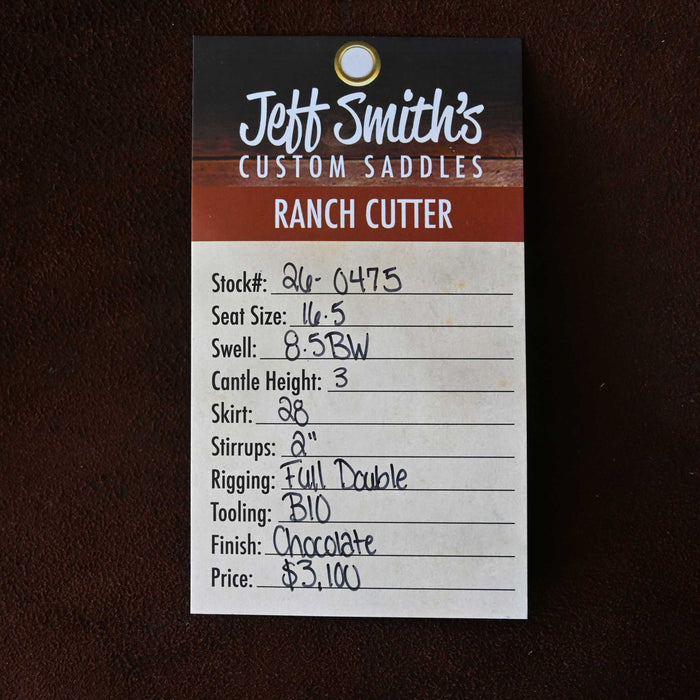 Jeff Smith's
CUSTOM SADDLES
RANCH CUTTER
Stock#: 26-0475
Seat Size: 16.5
Swell: 8.5BW
Cantle Height: 3
Skirt: 28
Stirrups: 2"
Rigging: Full Double
Tooling: B10
Finish: Chocolate
Price: $3,100